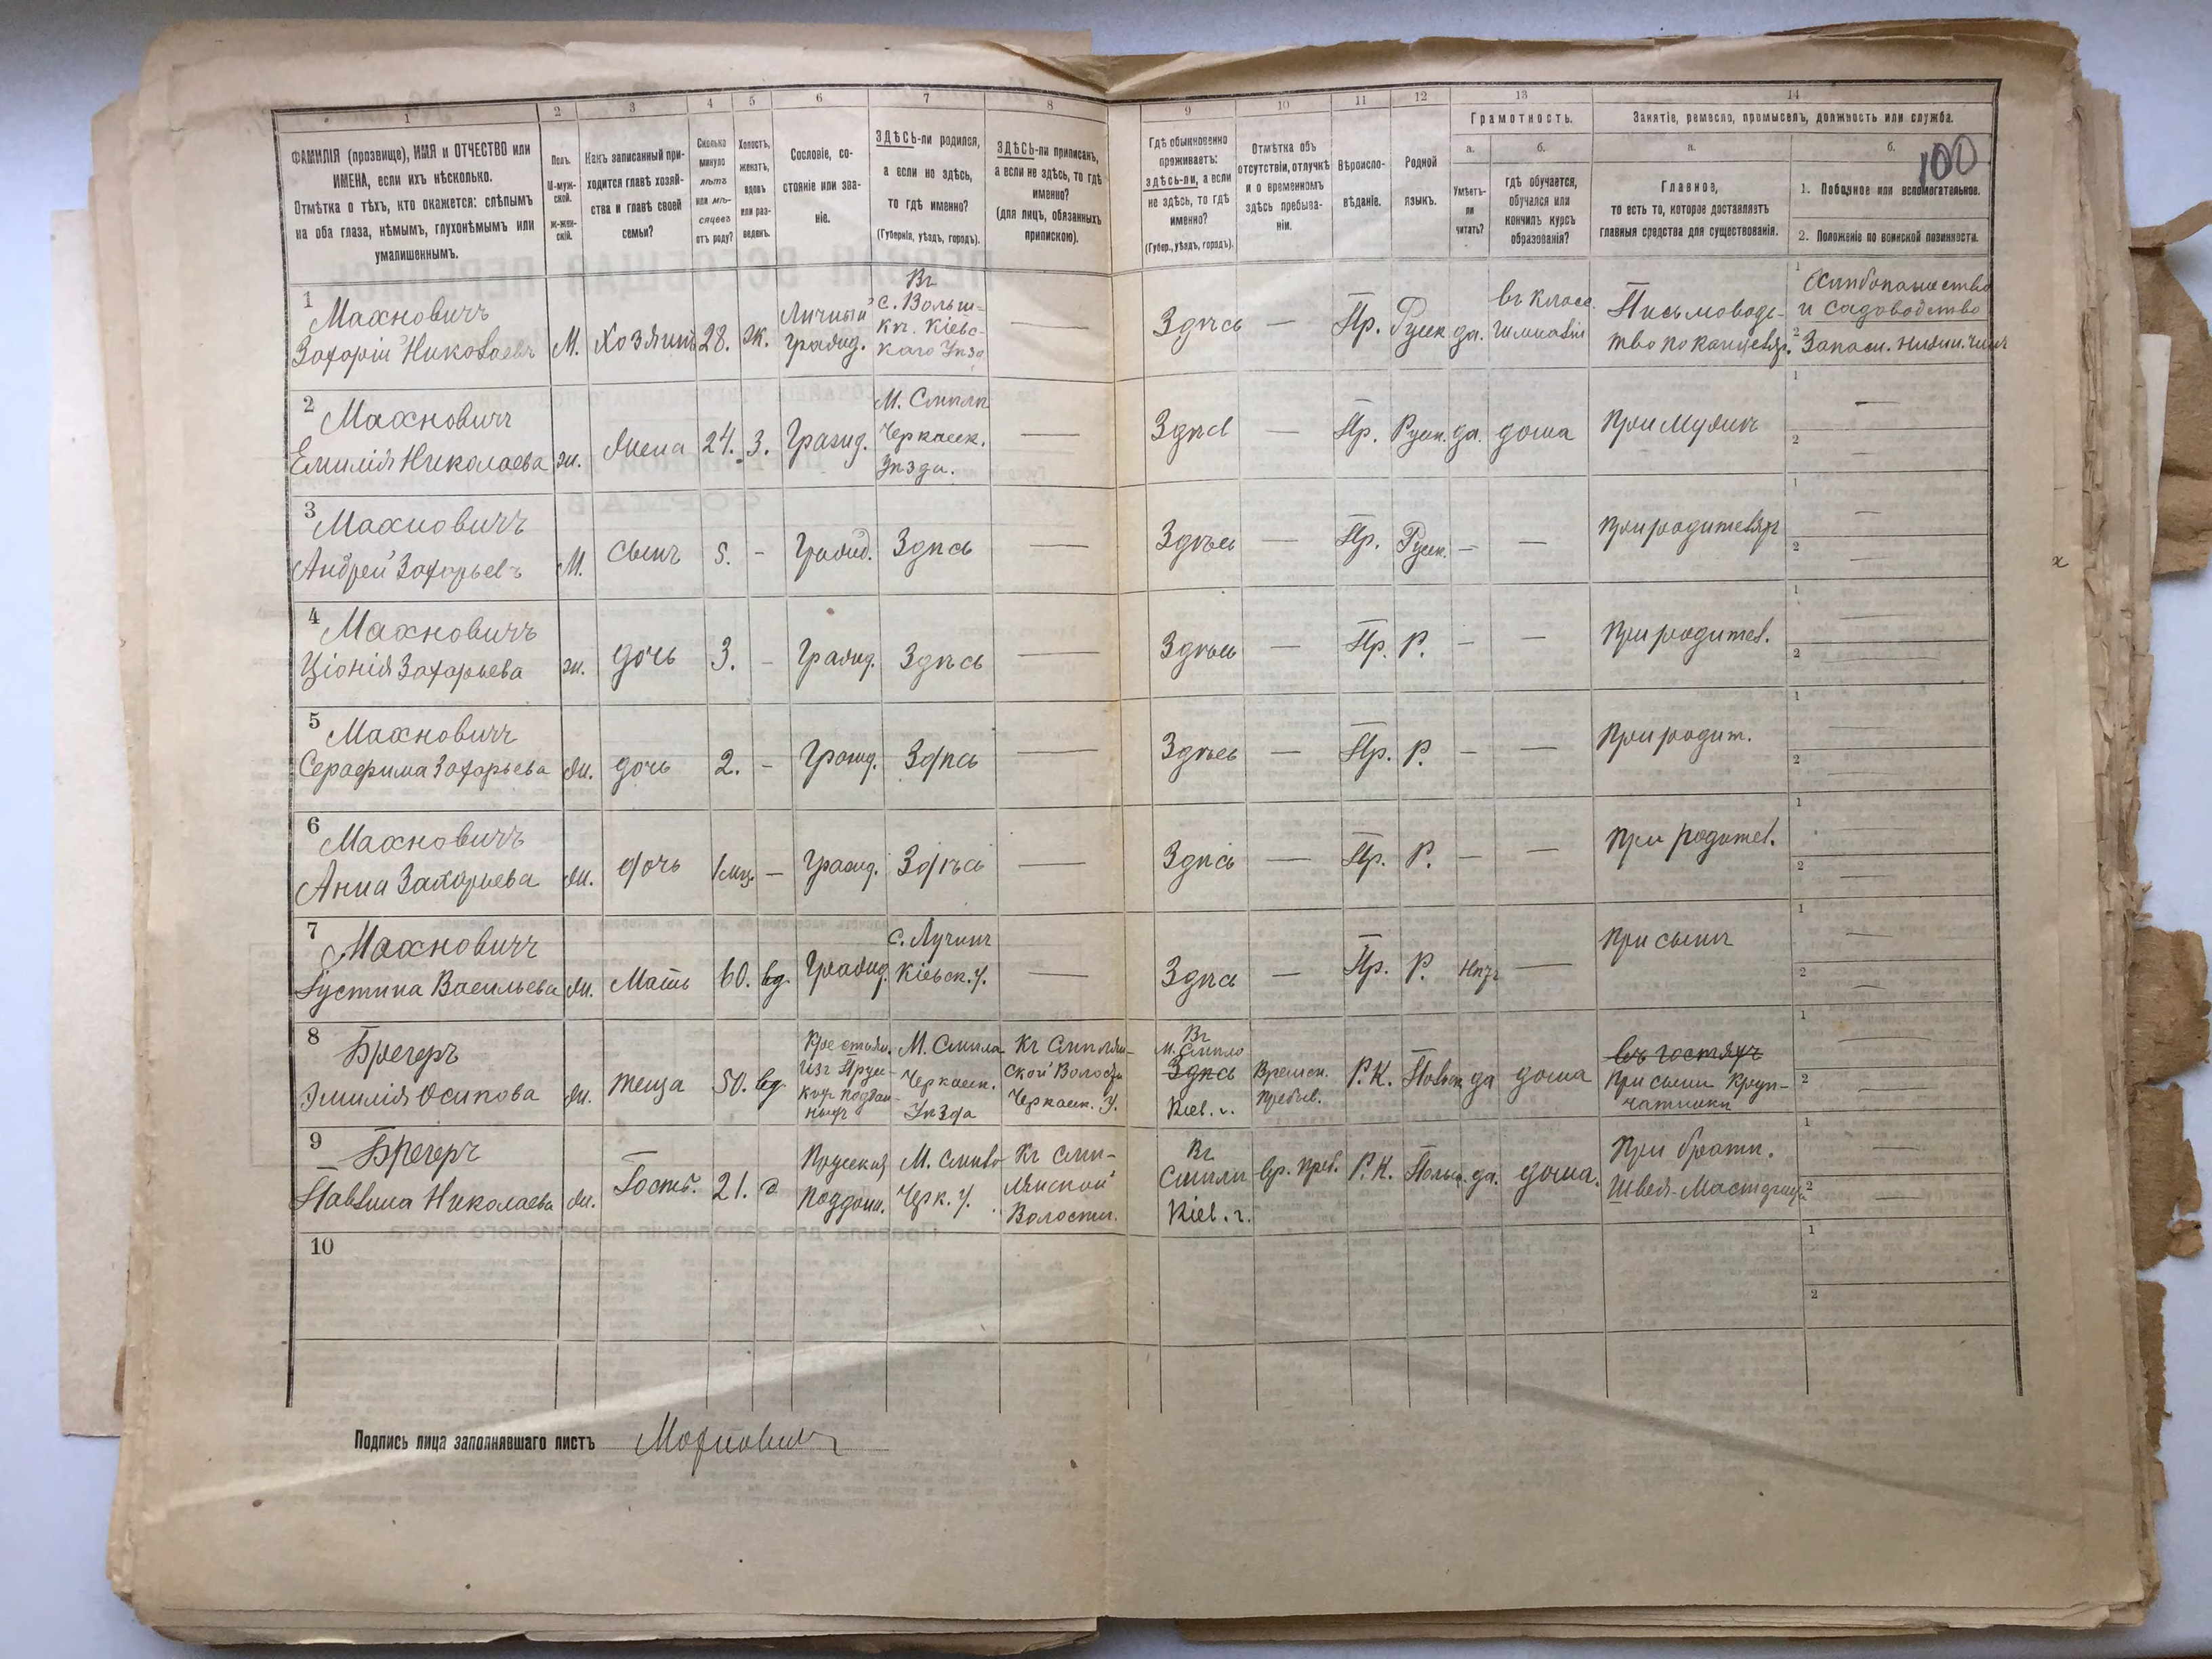 1 2 3 4 5 6 7 8 9 10 11 12 13 14
ФАМИЛІЯ (прозвище), ИМЯ и ОТЧЕСТВО или
ИМЕНА, если ихъ нѣсколько.
Отмѣтка о тѣхъ, кто окажется: слѣпымъ
на оба глаза, нѣмымъ, глухонѣмымъ или
умалишеннымъ.
Полъ.
М-муж-
ской.
Ж-жен-
скій.
Какъ записанный при-
ходится главѣ хозяй-
ства и главѣ своей
семьи?
Сколько
минуло
лѣтъ
или мѣ-
сяцевъ
отъ роду?
Холостъ,
женатъ,
вдовъ
или раз-
веденъ.
Сословіе, со-
стояніе или зва-
ніе.
ЗДѢСЬ-ли родился,
а если не здѣсь,
то гдѣ именно?
(Губернія, уѣздъ, городъ).
ЗДѢСЬ-ли приписанъ,
а если не здѣсь, то гдѣ
именно?
(для лицъ, обязанныхъ
припискою).
Гдѣ обыкновенно
проживаетъ:
здѣсь-ли, а если
не здѣсь, то гдѣ
именно?
(Губер., уѣздъ, городъ).
Отмѣтка объ
отсутствіи, отлучкѣ
и о временномъ
здѣсь пребыва-
ніи.
Вѣроиспо-
вѣданіе.
Родной
языкъ.
Грамотность.
а.
Умѣетъ-
ли
читать?
б.
гдѣ обучается,
обучался или
кончилъ курсъ
образованія?
Занятіе, ремесло, промыселъ, должность или служба.
а.
Главное,
то есть то, которое доставляетъ
главныя средства для существованія.
б.
100
1. Побочное или вспомогательное.
2. Положеніе по воинской повинности.
1
Махновичъ
Захарій Николаевъ
М. Хозяинъ 28. ж.
Личный
гражд.
с. Вольш-
ка. Кіевс-
каго Уѣзда
—
Здѣсь — Пр. Русск да.
въ класс.
гимназіи
Письмовод-
тво по канцеляр.
1
Хлѣбопашество
и садоводство
2 Запасн. нижн. чинъ
2
Махновичъ
Емилія Николаева
ж. жена 24. з. Гражд.
М. Смѣла
Черкасск.
Уѣзда.
—
Здѣсь — Пр. Русск. да. дома При мужѣ
1 —
2 —
3
Махновичъ
Андрей Захарьевъ
М. сынъ 5. - Гражд. Здѣсь —
Здѣсь — Пр. Русск. — — При родителяхъ
1 —
2 —
4
Махновичъ
Ціонія Захарьева
ж. дочь 3. - Гражд. Здѣсь —
Здѣсь — Пр. Р. - — При родител.
1 —
2 —
5
Махновичъ
Серафима Захарьева
ж. дочь 2. - Гражд. Здѣсь —
Здѣсь — Пр. Р. - — При родит.
1 —
2 —
6
Махновичъ
Анна Захарьева
ж. дочь 1 мц. — Гражд. Здѣсь —
Здѣсь — Пр. Р. — — При родител.
1 —
2 —
7
Махновичъ
Густина Васильева
ж. Мать 60. вд. Гражд.
с. Лучинъ
Кіевск. у.
—
Здѣсь — Пр. Р. нѣтъ — При сынѣ
1 —
2 —
8
Брегеръ
Эмилія Осипова
ж. теща 50. вд
Крестьян.
изъ Прус-
кихъ поддан-
ныхъ
М. Смѣла
Черкасск.
Уѣзда
Къ Смѣлян-
ской Волости
Черкасск. У.
Въ
м. Смѣло
Здѣсь
Кіев. г.
Времен.
пребыв.
Р. К. Польск да дома
въ гостяхъ
При сынѣ
1 —
2 —
9
Брегеръ
Павлина Николаева
ж. Гостья. 21. д
Прусская
поддан.
М. Смѣла
Черк. у.
Къ Смѣ-
лянской
Волости.
Въ
Смѣлѣ
Кіев. г.
вр. преб. Р. К. Польск. да. дома.
При братѣ.
Швея-Мастерица
1 —
2 —
10
1
2
Подпись лица заполнявшаго листъ Махновичъ